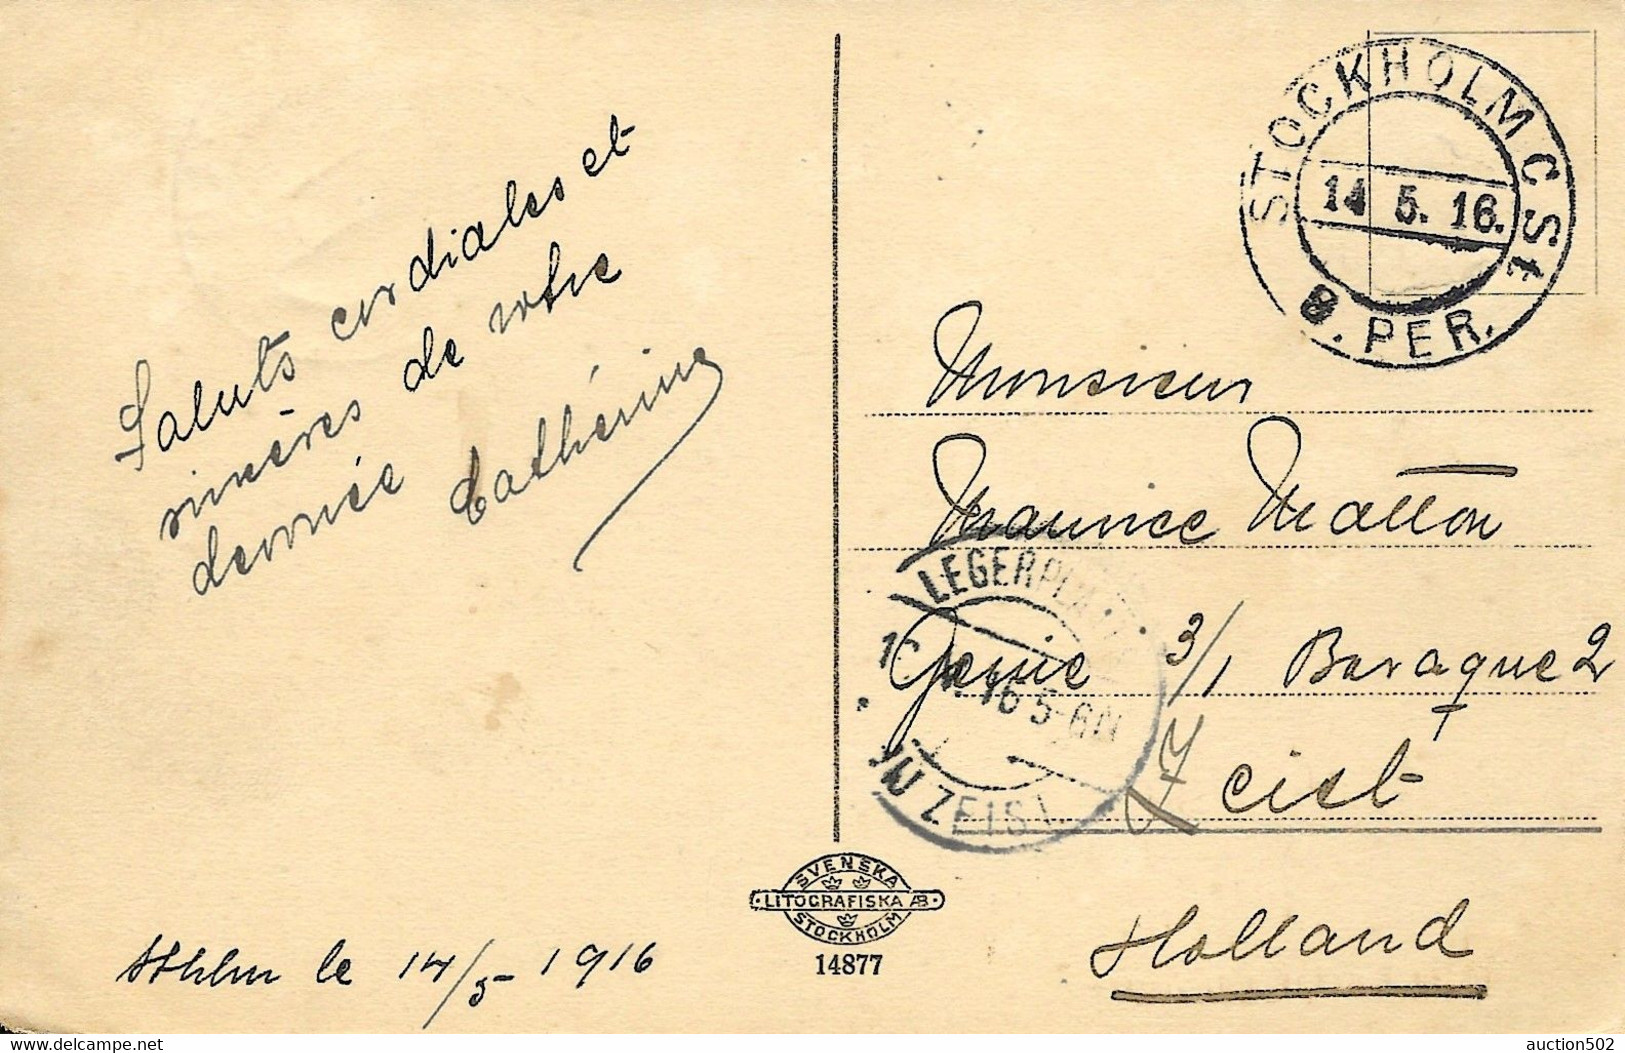 Saluts cordiales et
sincères de votre
dévouée Cathérine
Sthlm le 14/5 1916
SVENSKA
LITOGRAFISKA AB
STOCKHOLM
14877
STOCKHOLM C St
14 5. 16.
8. PER.
Monsieur
Maurice Matton
Genie 3/1 Baraque 2
Zeist
Holland
LEGERPLA
16 5-6N
ZEIST
delcampe.net
auction502